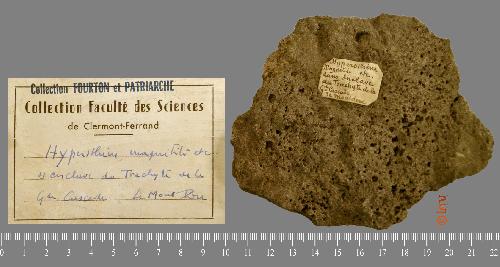 Collection FOURTON et PATRIARCHE
Collection Faculté des Sciences
de Clermont-Ferrand
Hypersthène magnétite
enclave du Trachyte de la
Gde Cascade Le Mont Dore
Hypersthène
dans enclave
du Trachyte de la
Gde Cascade
0 1 2 3 4 5 6 7 8 9 10 11 12 13 14 15 16 17 18 19 20 21 22